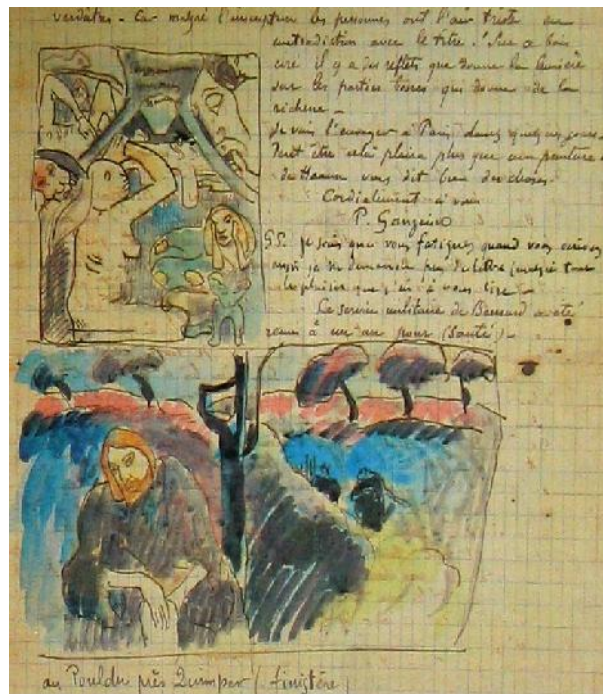 verdâtre. Car malgré l'inscription les personnes ont l'air triste en
contradiction avec le titre. Sur ce bois
ciré il y a des reflets que donne la lumière
sur les parties bosses qui donne de la
richesse _
Je vais l'envoyer à Paris dans quelques jours _
Peut être cela plaira plus que ma peinture.
de Haan vous dit bien des choses.
Cordialement à vous
P. Gauguin
P.S. Je sais que vous fatiguez quand vous écrivez
aussi je ne demande pas de lettre malgré tout
le plaisir que j'ai à vous lire _
Le service militaire de Bernard a été
remis à un an pour (Santé) _
au Pouldu près Quimper (finistère)